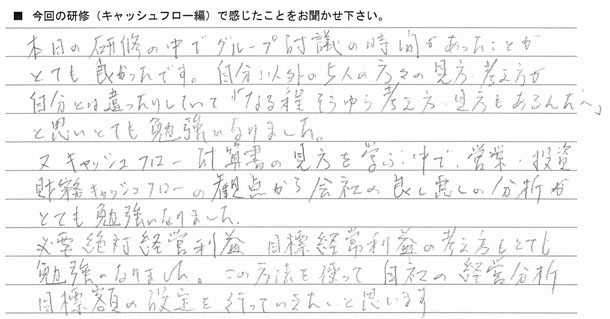 ■ 今回の研修（キャッシュフロー編）で感じたことをお聞かせ下さい。
本日の研修の中でグループ討議の時間があったことが
とても良かったです。自分以外の5人の方々の見方・考え方が
自分とは違ったりしていて"なる程そうゆう考え方・見方もあるんだ〜"
と思いとても勉強になりました。
又キャッシュフロー計算書の見方を学ぶ中で、営業・投資
財務キャッシュフローの観点から会社の良し悪しの分析が
とても勉強になりました。
必要絶対経常利益 目標経常利益の考え方もとても
勉強になりました。この方法を使って自社の経営分析
目標額の設定を行っていきたいと思います